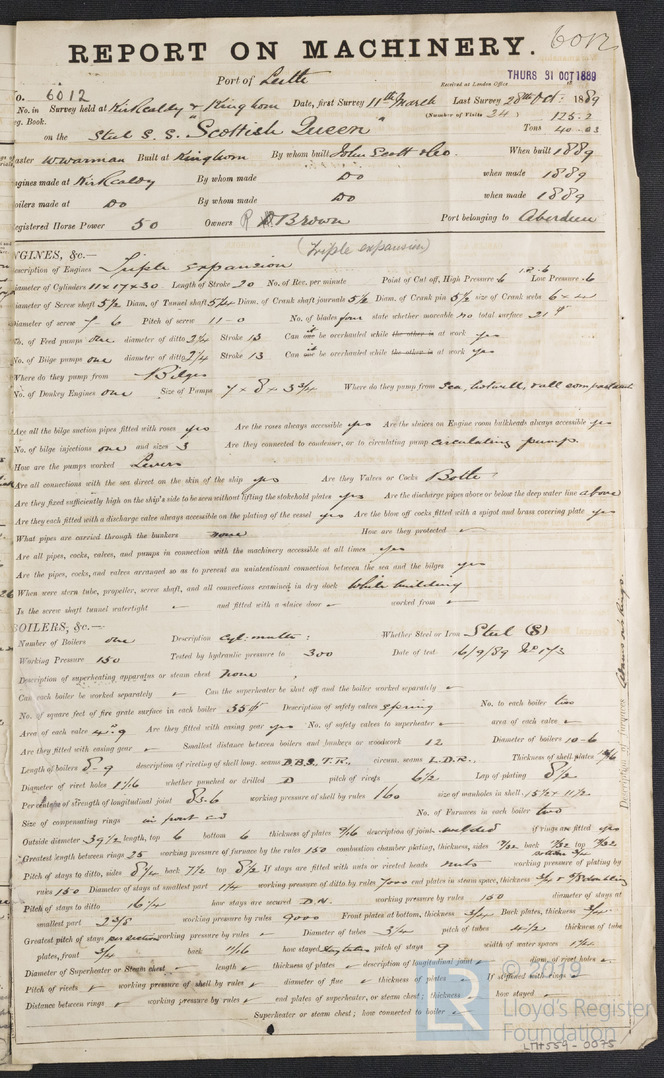 REPORT ON MACHINERY. 6012
Port of Leith
Received at London Office THURS 31 OCT 1889
No. 6012
No. in Survey held at Kirkcaldy & Kinghorn Date, first Survey 11th March Last Survey 28th Oct: 1889
Reg. Book. (Number of Visits 34)
on the Steel S. S. "Scottish Queen" Tons 125.2
40.03
Master W. Warman Built at Kinghorn By whom built John Scott & Co. When built 1889
Engines made at Kirkcaldy By whom made Do when made 1889
Boilers made at Do By whom made Do when made 1889
Registered Horse Power 50 Owners R Brown Port belonging to Aberdeen
ENGINES, &c.— (Triple expansion)
Description of Engines Triple expansion
Diameter of Cylinders 11 x 17 x 30 Length of Stroke 20 No. of Rev. per minute Point of Cut off, High Pressure .6 Low Pressure .6
Diameter of Screw shaft 5 1/2 Diam. of Tunnel shaft 5 1/4 Diam. of Crank shaft journals 5 1/2 Diam. of Crank pin 5 1/2 size of Crank webs 6 x 4
Diameter of screw 7-6 Pitch of screw 11-0 No. of blades four state whether moveable no total surface 21
No. of Feed pumps one diameter of ditto 2 1/4 Stroke 13 Can it be overhauled while the other is at work yes
No. of Bilge pumps one diameter of ditto 2 1/4 Stroke 13 Can it be overhauled while the other is at work yes
Where do they pump from Bilges
No. of Donkey Engines one Size of Pumps 7 x 8 x 3 3/4 Where do they pump from Sea, hotwell, & all compartments
Are all the bilge suction pipes fitted with roses yes Are the roses always accessible yes Are the sluices on Engine room bulkheads always accessible yes
No. of bilge injections one and sizes 3 Are they connected to condenser, or to circulating pump circulating pump.
How are the pumps worked Levers
Are all connections with the sea direct on the skin of the ship yes Are they Valves or Cocks Both
Are they fixed sufficiently high on the ship's side to be seen without lifting the stokehold plates yes Are the discharge pipes above or below the deep water line above
Are they each fitted with a discharge valve always accessible on the plating of the vessel yes Are the blow off cocks fitted with a spigot and brass covering plate yes
What pipes are carried through the bunkers none How are they protected
Are all pipes, cocks, valves, and pumps in connection with the machinery accessible at all times yes
Are the pipes, cocks, and valves arranged so as to prevent an unintentional connection between the sea and the bilges yes
When were stern tube, propeller, screw shaft, and all connections examined in dry dock While building
Is the screw shaft tunnel watertight and fitted with a sluice door worked from
BOILERS, &c.—
Number of Boilers one Description cyl: mult: Whether Steel or Iron Steel (S)
Working Pressure 150 Tested by hydraulic pressure to 300 Date of test 16/9/89 No 173
Description of superheating apparatus or steam chest none
Can each boiler be worked separately Can the superheater be shut off and the boiler worked separately
No. of square feet of fire grate surface in each boiler 35 Description of safety valves spring No. to each boiler two
Area of each valve 4.9 Are they fitted with easing gear yes No. of safety valves to superheater area of each valve
Are they fitted with easing gear Smallest distance between boilers and bunkers or woodwork 12 Diameter of boilers 10-6
Length of boilers 8-9 description of riveting of shell long. seams D.B.S. T.R. circum. seams L.D.R. Thickness of shell plates
Diameter of rivet holes 1 1/16 whether punched or drilled D pitch of rivets 6 1/2 Lap of plating 8 1/2
Percentage of strength of longitudinal joint 83.6 working pressure of shell by rules 160 size of manholes in shell 15 1/2 x 11 1/2
Size of compensating rings No. of Furnaces in each boiler two
Outside diameter 39 1/2 length, top 6 bottom 6 thickness of plates 9/16 description of joint welded if rings are fitted yes
Greatest length between rings 25 working pressure of furnace by the rules 150 combustion chamber plating, thickness, sides 17/32 back 17/32 top 17/32
Pitch of stays to ditto, sides 8 1/4 back 7 1/2 top 8 1/2 If stays are fitted with nuts or riveted heads nuts working pressure of plating by
rules 150 Diameter of stays at smallest part 1 1/4 working pressure of ditto by rules 7000 end plates in steam space, thickness
Pitch of stays to ditto 16 1/4 how stays are secured D.N. working pressure by rules 150 diameter of stays at
smallest part 2 3/8 working pressure by rules 9000 Front plates at bottom, thickness 3/4 Back plates, thickness 3/4
Greatest pitch of stays working pressure by rules Diameter of tubes 3 1/4 pitch of tubes 4 1/2 thickness of tube
plates, front 3/4 back 11/16 how stayed Stay tubes pitch of stays 9 width of water spaces 1 1/4
Diameter of Superheater or Steam chest length thickness of plates description of longitudinal joint diam. of rivet holes
Pitch of rivets working pressure of shell by rules diameter of flue thickness of plates If stiffened with rings
Distance between rings working pressure by rules end plates of superheater, or steam chest; thickness how stayed
Superheater or steam chest; how connected to boiler
Description of Furnaces
© 2019
LR
Lloyd's Register
Foundation
LTH554-0075